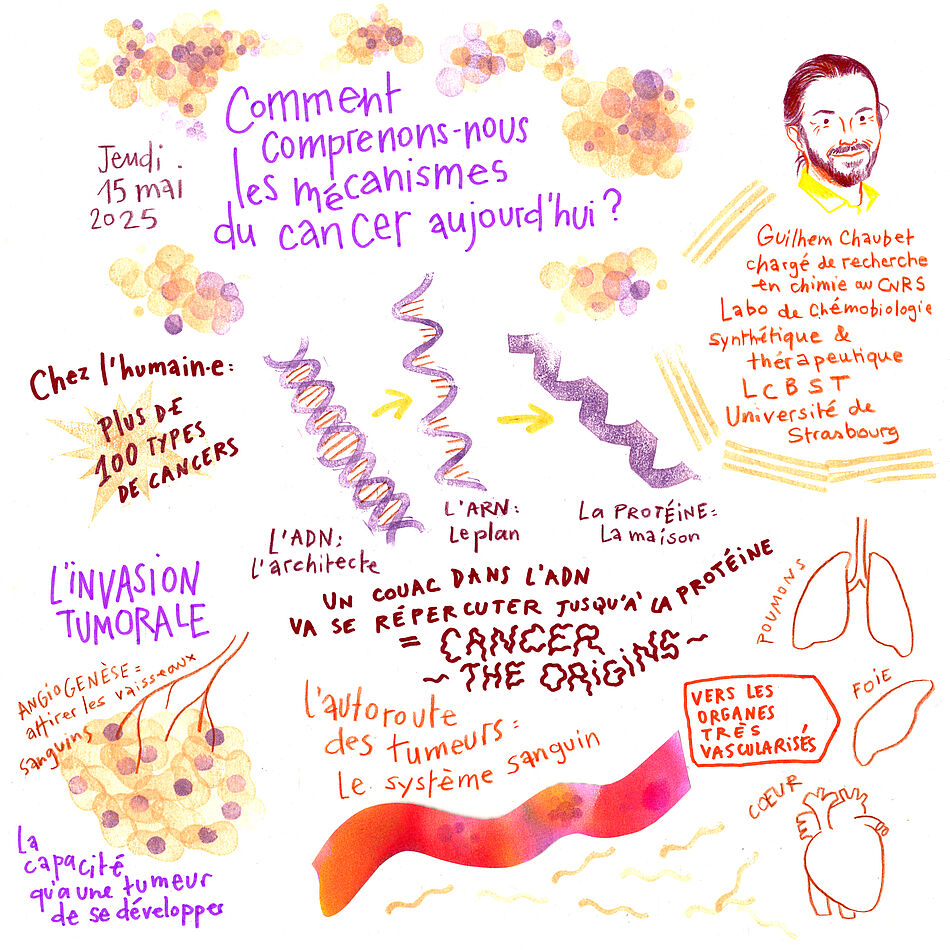 Comment
comprenons-nous
les mécanismes
du cancer aujourd'hui ?
Jeudi
15 mai
2025
Guilhem Chaubet
chargé de recherche
en chimie au CNRS
Labo de Chémobiologie
synthétique &
thérapeutique
LCBST
Université de
Strasbourg
Chez l'humain·e:
PLUS DE
100 TYPES
DE CANCERS
L'ADN:
l'architecte
L'ARN:
Le plan
La PROTÉINE:
La maison
UN COUAC DANS L'ADN
VA SE RÉPERCUTER JUSQU'À LA PROTÉINE
= CANCER
~ THE ORIGINS ~
L'INVASION
TUMORALE
ANGIOGENÈSE =
attirer les vaisseaux
sanguins
La
capacité
qu'a une tumeur
de se développer
L'autoroute
des tumeurs:
Le système sanguin
VERS LES
ORGANES
TRÈS
VASCULARISÉS
POUMONS
FOIE
COEUR